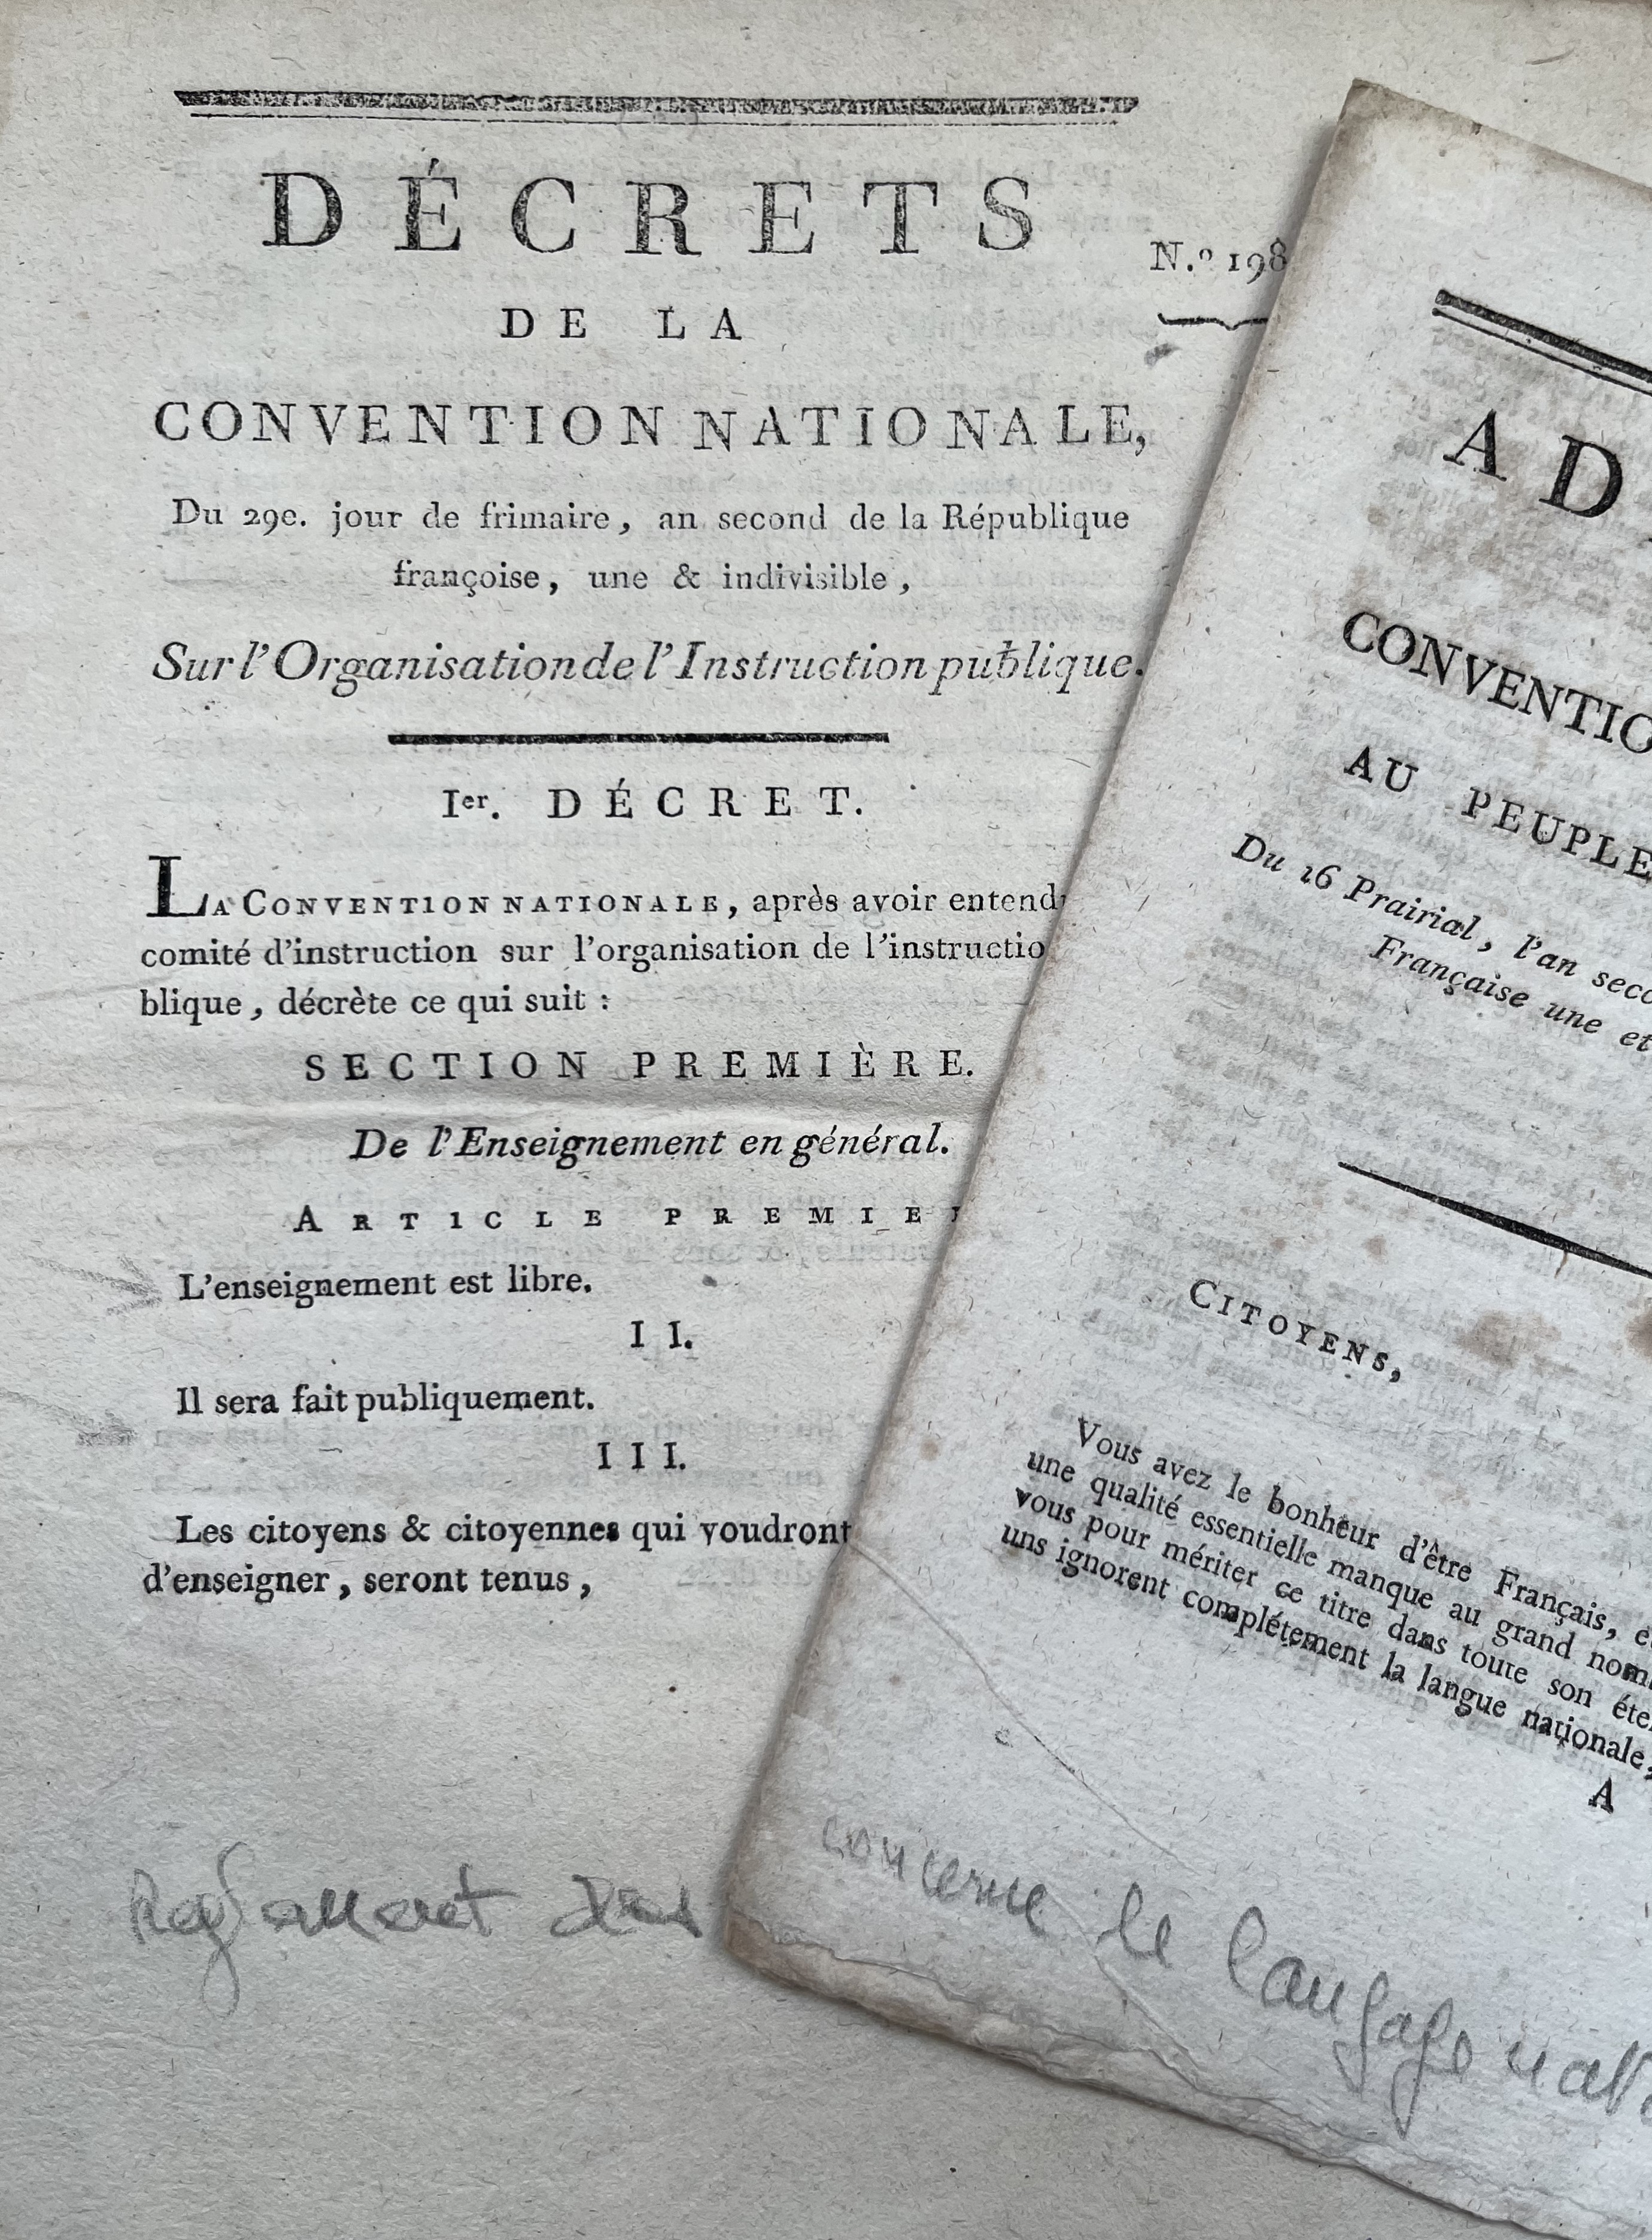 DÉCRETS
N.º 198
DE LA
CONVENTION NATIONALE,
Du 29e. jour de frimaire, an second de la République
françoise, une & indivisible,
Sur l'Organisation de l'Instruction publique.
Ier. DÉCRET.
LA CONVENTION NATIONALE, après avoir entendu
comité d'instruction sur l'organisation de l'instructio
blique, décrète ce qui suit :
SECTION PREMIÈRE.
De l'Enseignement en général.
ARTICLE PREMIE
L'enseignement est libre.
II.
Il sera fait publiquement.
III.
Les citoyens & citoyennes qui voudront
d'enseigner, seront tenus,
AD
CONVENTIO
AU PEUPLE
Du 16 Prairial, l'an seco
Française une et
CITOYENS,
Vous avez le bonheur d'être Français, e
une qualité essentielle manque au grand nom
vous pour mériter ce titre dans toute son éte
uns ignorent complétement la langue nationale,
A
concerne le langage nat